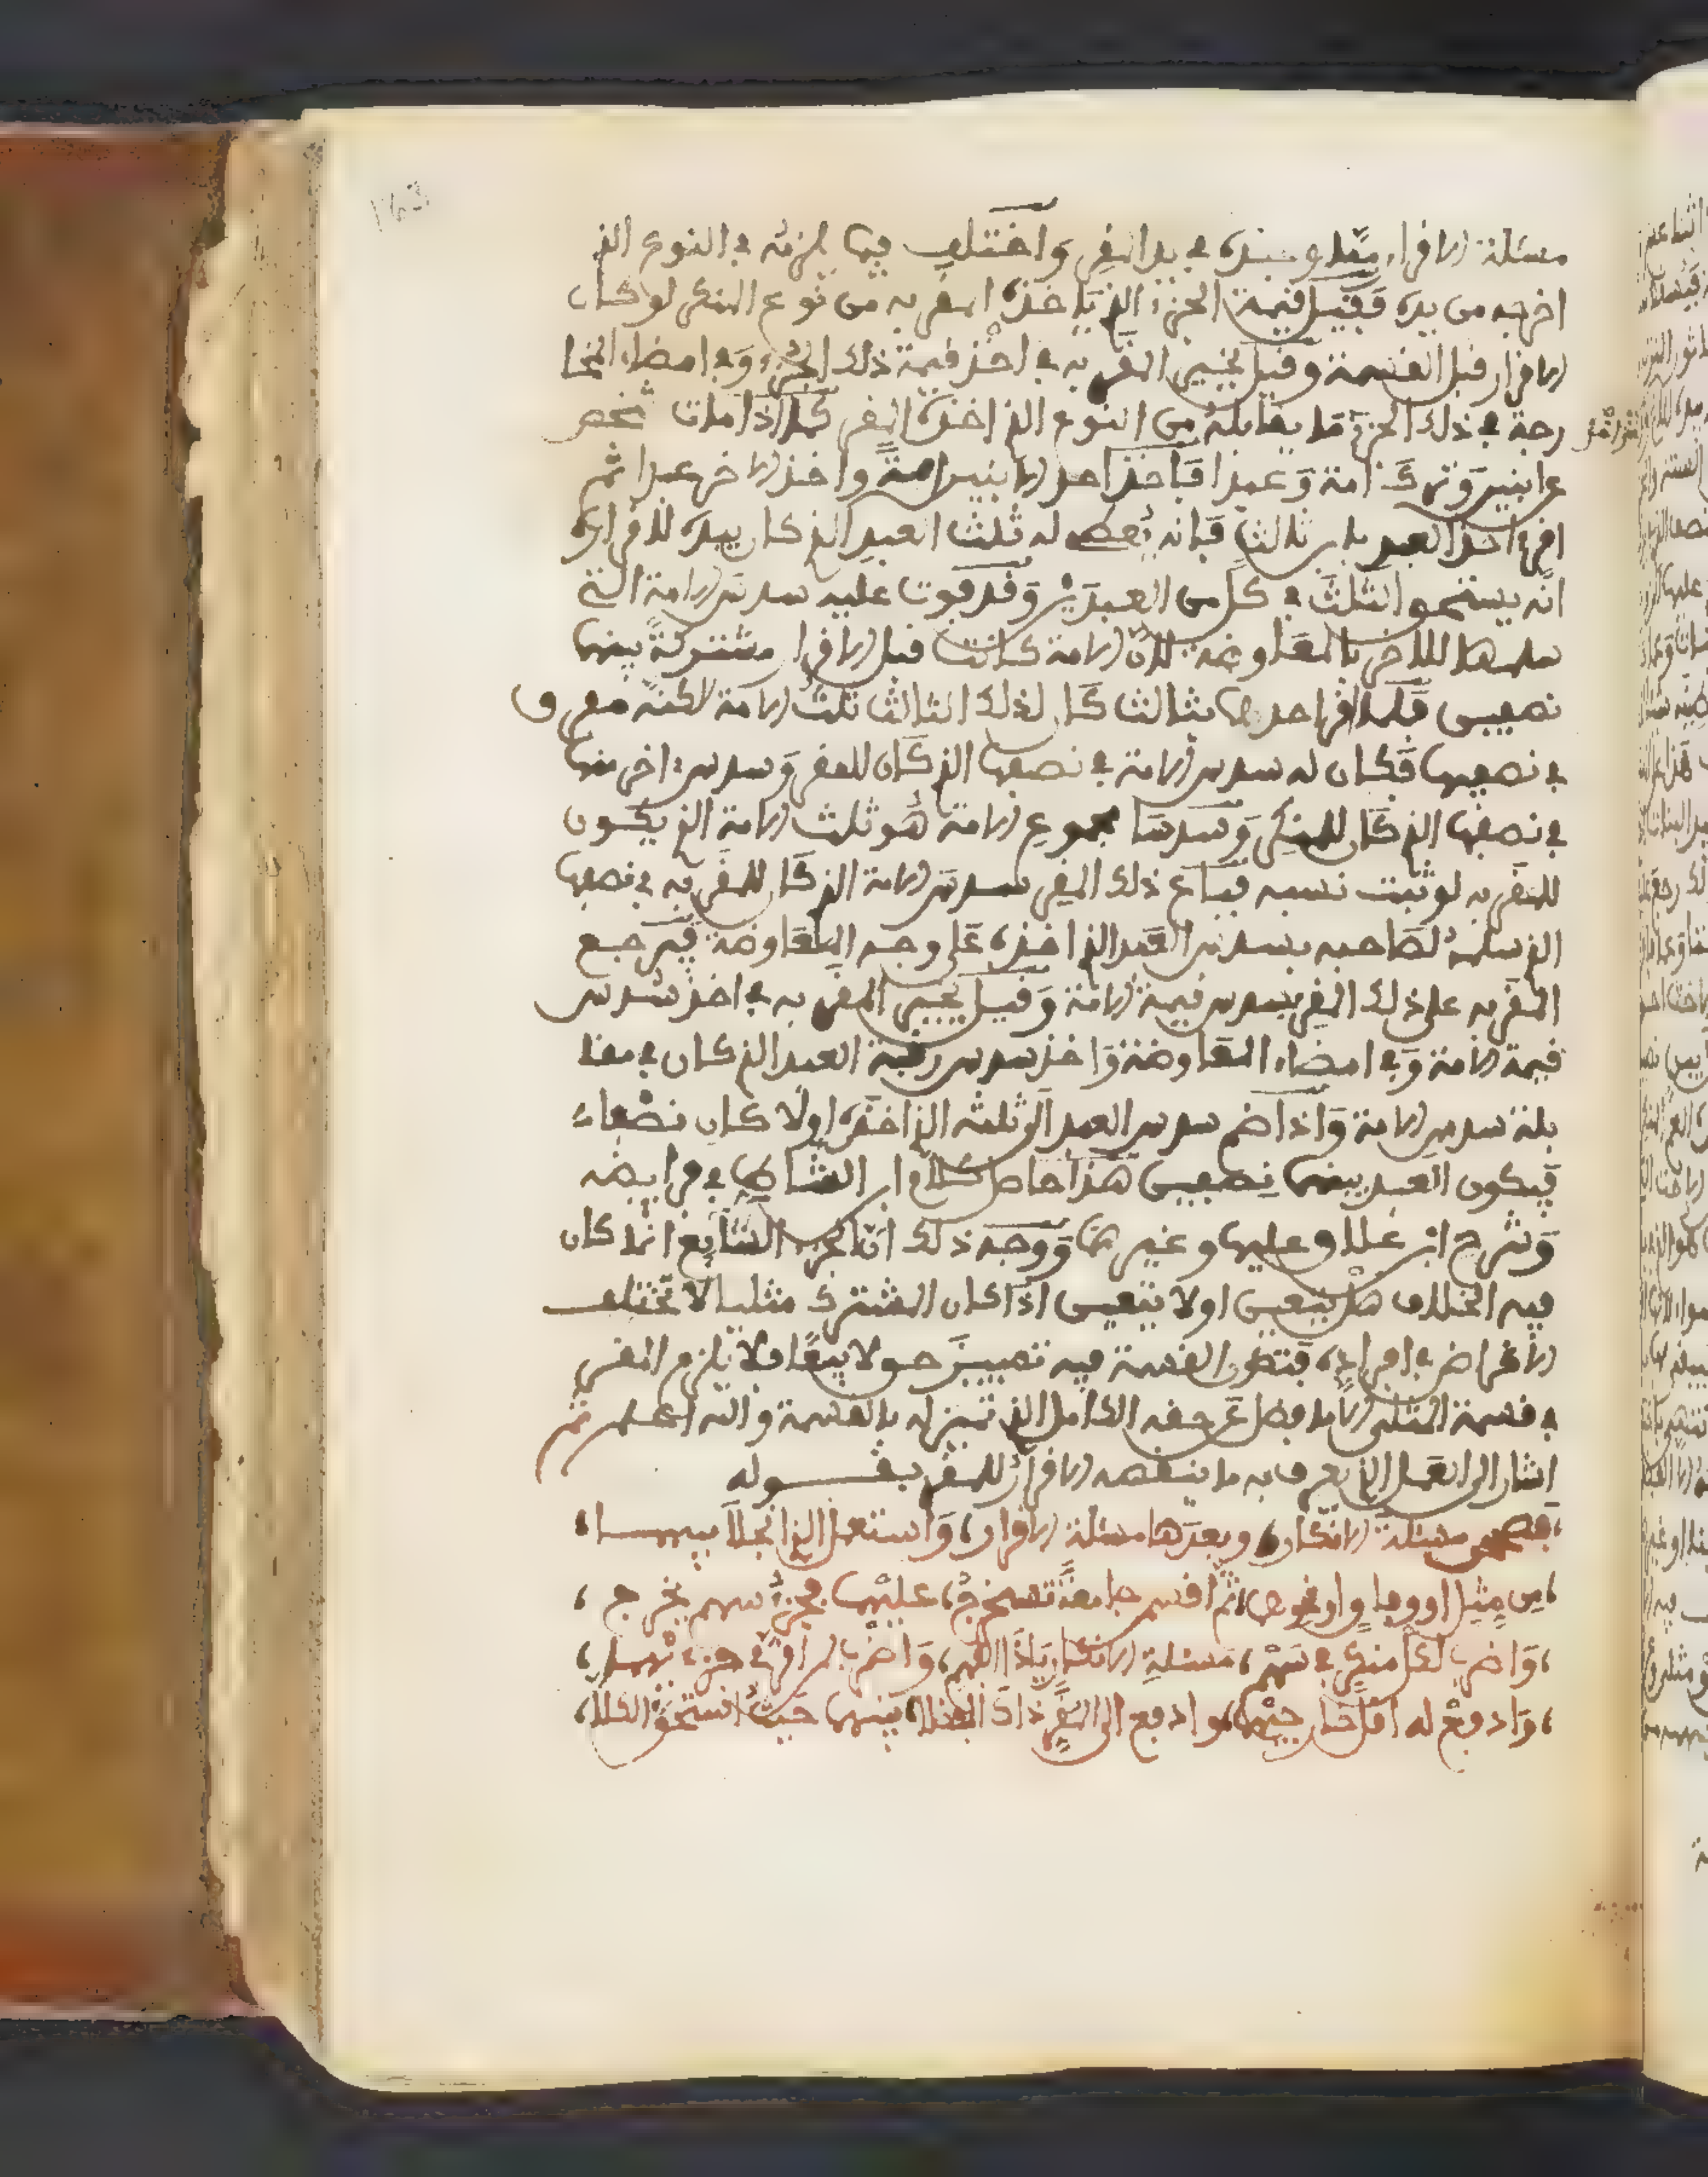 مسئلة الاقرار مما وجد في يد المقر واختلف فيما يلزمه في النوع الذي
اخرجه من يده فقيل قيمة الجزء الذي ياخذه المقر به من نوع المنكر لو كان
الاقرار قبل القسمة وقيل يخير المقر به في اخذ قيمة ذلك الجزء وفي امضاء المخا
رجة في ذلك الجزء بما يقابله من النوع الذي اخذه المقر كما اذا مات شخص
عن ابنين وترك امة وعبدا فاخذ احد الابنين امة واخذ الاخر عبدا ثم
اقر اخذ العبد بابن ثالث فانه يعطى له ثلث العبد الذي كان بيده لاقراره
انه يستحق الثلث في كل من العبدين وقد فوت عليه سدس الامة التي
سلمها للاخر بالمعاوضة لان الامة كانت قبل الاقرار مشتركة بينهما
نصفين فلما اقر احدهما بثالث كان لذلك الثالث ثلث الامة لكنه مفرق
في نصفيها فكان له سدس الامة في نصفها الذي كان للمقر وسدس اخر منها
في نصفها الذي كان للمنكر وسدسا مجموع الامة هو ثلث الامة الذي يكون
للمقر به لو ثبت نسبه فباع ذلك المقر سدس الامة الذي كان للمقر به في نصفها
الذي سلمه لصاحبه بسدس العبد الذي اخذه على وجه المعاوضة فيرجع
المقر به على ذلك المقر بسدس قيمة الامة وقيل يخير المقر به في اخذ سدس
قيمة الامة وفي امضاء المعاوضة واخذ سدس رقبة العبد الذي كان في مقا
بلة سدس الامة واذا ضم سدس العبد الى ثلثه الذي اخذه اولا كان نصفا
فيكون العبد بينهما نصفين هذا حاصل كلام ابن الشاط في فرايضه
وشرح ابن علاو عليها وغيرهما ووجه ذلك ان الجزء الشايع انما كان
فيه الخلاف هل يتعين او لا يتعين اذا كان المشترك مثليا لا تختلف
الاغراض في افراده فتكون القسمة فيه تمييز حق لا بيعا فلا يلزم المقر
في قسمة المثلي الا ما فضل عن حقه الكامل الذي تميز له بالقسمة والله اعلم ثم
اشار الى العمل الذي يعرف به ما ينقصه الاقرار للمقر بقوله
فصحح مسئلة الانكار، وبعدها مسئلة الاقرار، واستعمل الذي انجلا بينهما،
،من مثل او وفاق او نحوهما، ثم اقسم جامعة تصح، عليهما بجزء سهم يخرج،
،واضرب لكل منكر في سهم، مسئلة الانكار ياذا الفهم، واضرب لمن اقر في جزء سهم،
،وادفع له اقل خارجيهما، وادفع الى المقر ذاك الفضلا، بينهما حيث استحق الكلا،